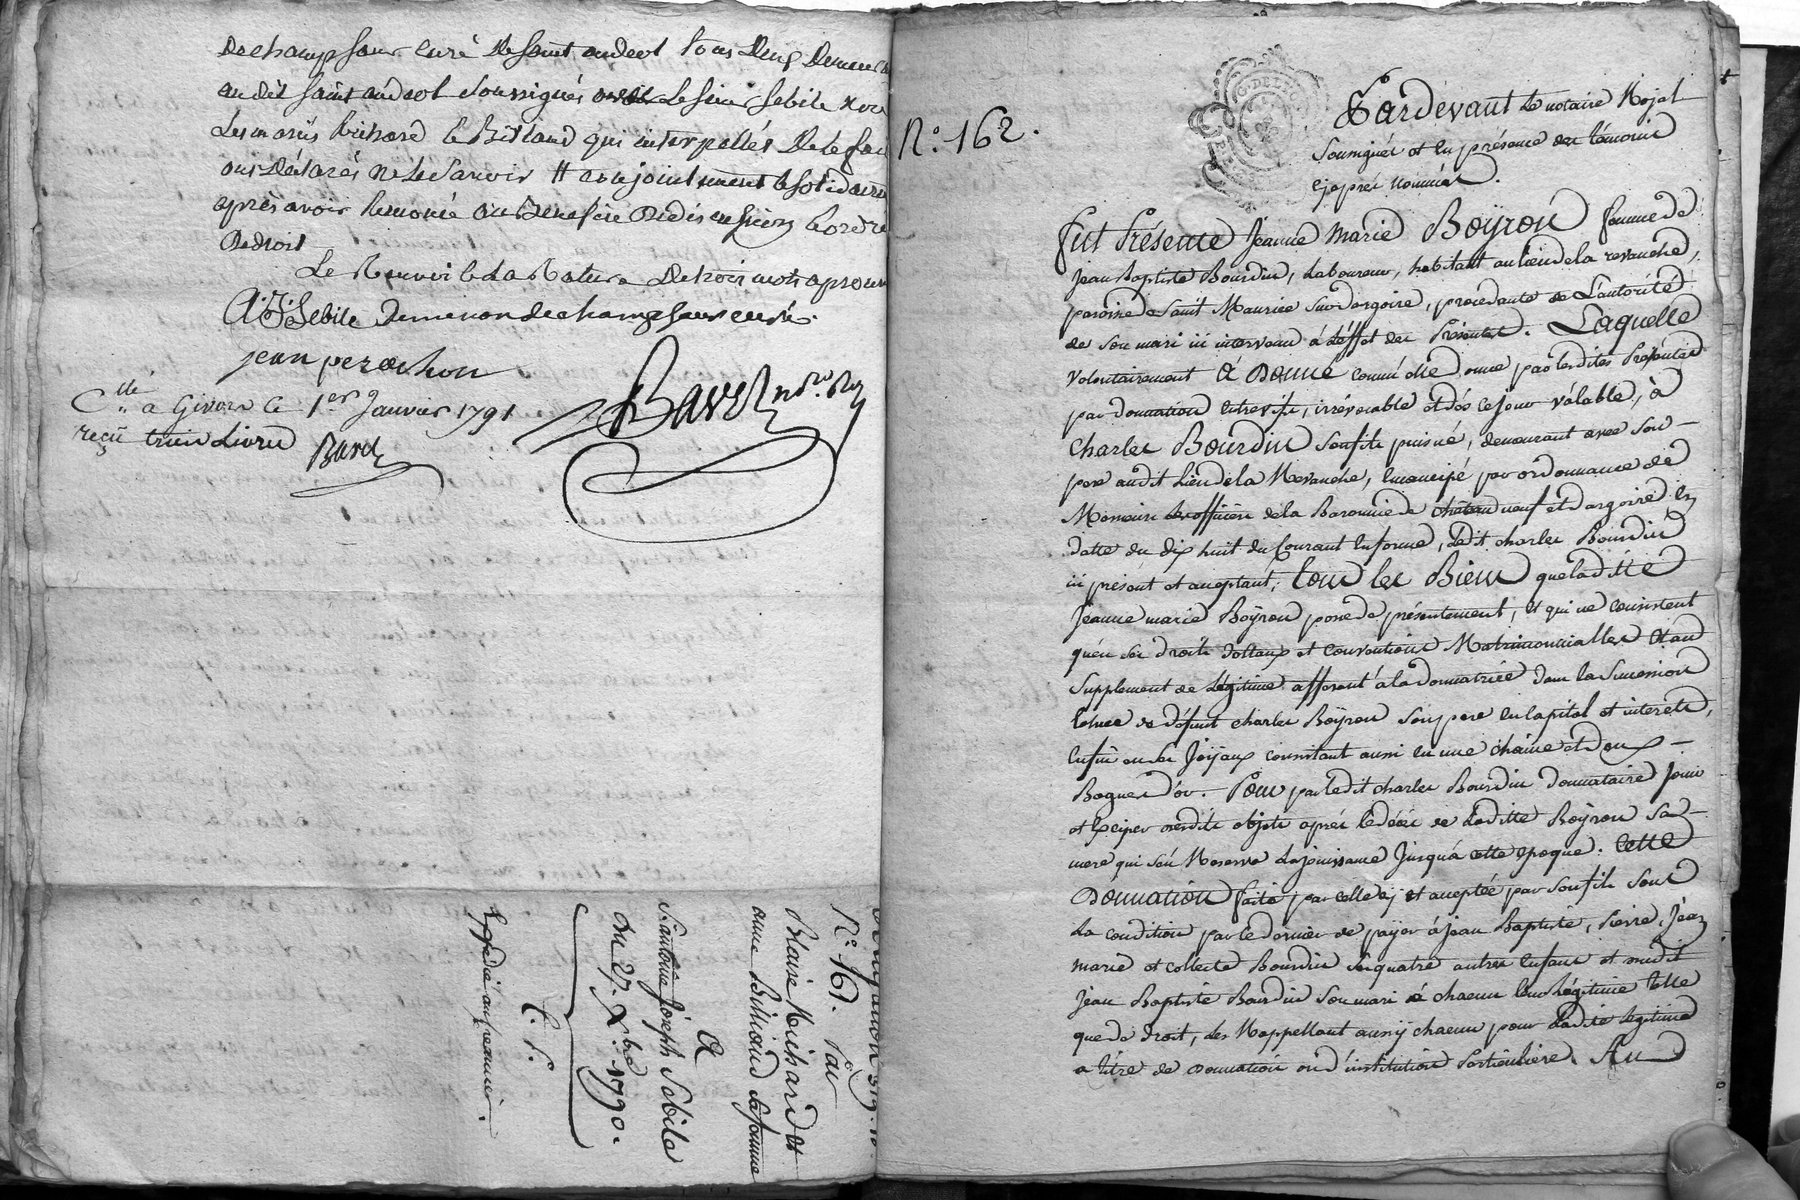 Dechampsaur curé de saint andeol tous deux demeur
audit saint andeol soussignés le sieur sebile
Les mariés Richard et Billiaud qui interpellés de le fai
ont déclarés ne le scavoir # conjointement et solidaire
après avoir renoncé au benefice de discussion et ordre
de droit
Le Renvoi et la Rature de trois mots aprouv
A: J: Sebile Demenon dechampsaur curé.
jean perachon
Bavet nore. Roy.
Clle. a Givors le 1er. Janvier 1791
reçu trois Livres Bavet
N°. 161. Par
Blaise Richard et
anne Billiaud sa femme
A
S. antoine Joseph Sebile
du 27. Xbre. 1790.
C. P.
Expédié au creancier.
N°. 162.
G. DE LYON
Pardevant Le notaire Royal
soussigné et en présence des témoins
cy après nommés.
fut Présente Jeanne Marie Boÿron femme de
Jean Baptiste Bourdin, Laboureur, habitant au lieu de la revanche,
paroisse de Saint Maurice sur dargoire, procedante de L'autorité
de son mari ici intervenu à l'effet des Présentes. Laquelle
volontairement a Donné comme elle donne par lesdites Présentes
par donnation entrevifs, irrévocable et dès ce jour valable, à
Charles Bourdin son fils puisné, demeurant avec son
pere audit Lieu de la Revanche, emancipé par ordonnance de
Messieurs les officiers de la Baronnie de chateauneuf et dargoire en
datte du dix huit du Courant en forme, Ledit charles Bourdin
ici présent et acceptant; tous les Biens que laditte
Jeanne marie Boÿron possede présentement, et qui ne consistent
qu'en ses droits dottaux et conventions Matrimonialles et au
Supplement de Légitime afferant à la donnatrice dans la Succession
de défunt charles Boÿron son pere en Capital et interets,
Enfin en ses Joÿaux consistant aussi en une chaine et deux
Bagues d'or. Pour par Ledit charles Bourdin donnataire Jouir
et Exciper desdits objets après le décès de Laditte Boÿron sa
mere qui s'en Reserve La jouissance Jusqu'à cette époque. Cette
Donnation faite par celle cÿ et acceptée par son fils sous
La condition par le dernier de paÿer à Jean Baptiste, Pierre, Jean
marie et collecte Bourdin ses quatre autres enfans et audit
Jean Baptiste Bourdin son mari à chacun leur Légitime telle
que de droit, Les Rappellant aussÿ chacun pour Ladite légitime
a titre de donnation ou d'institution Particuliere. Au